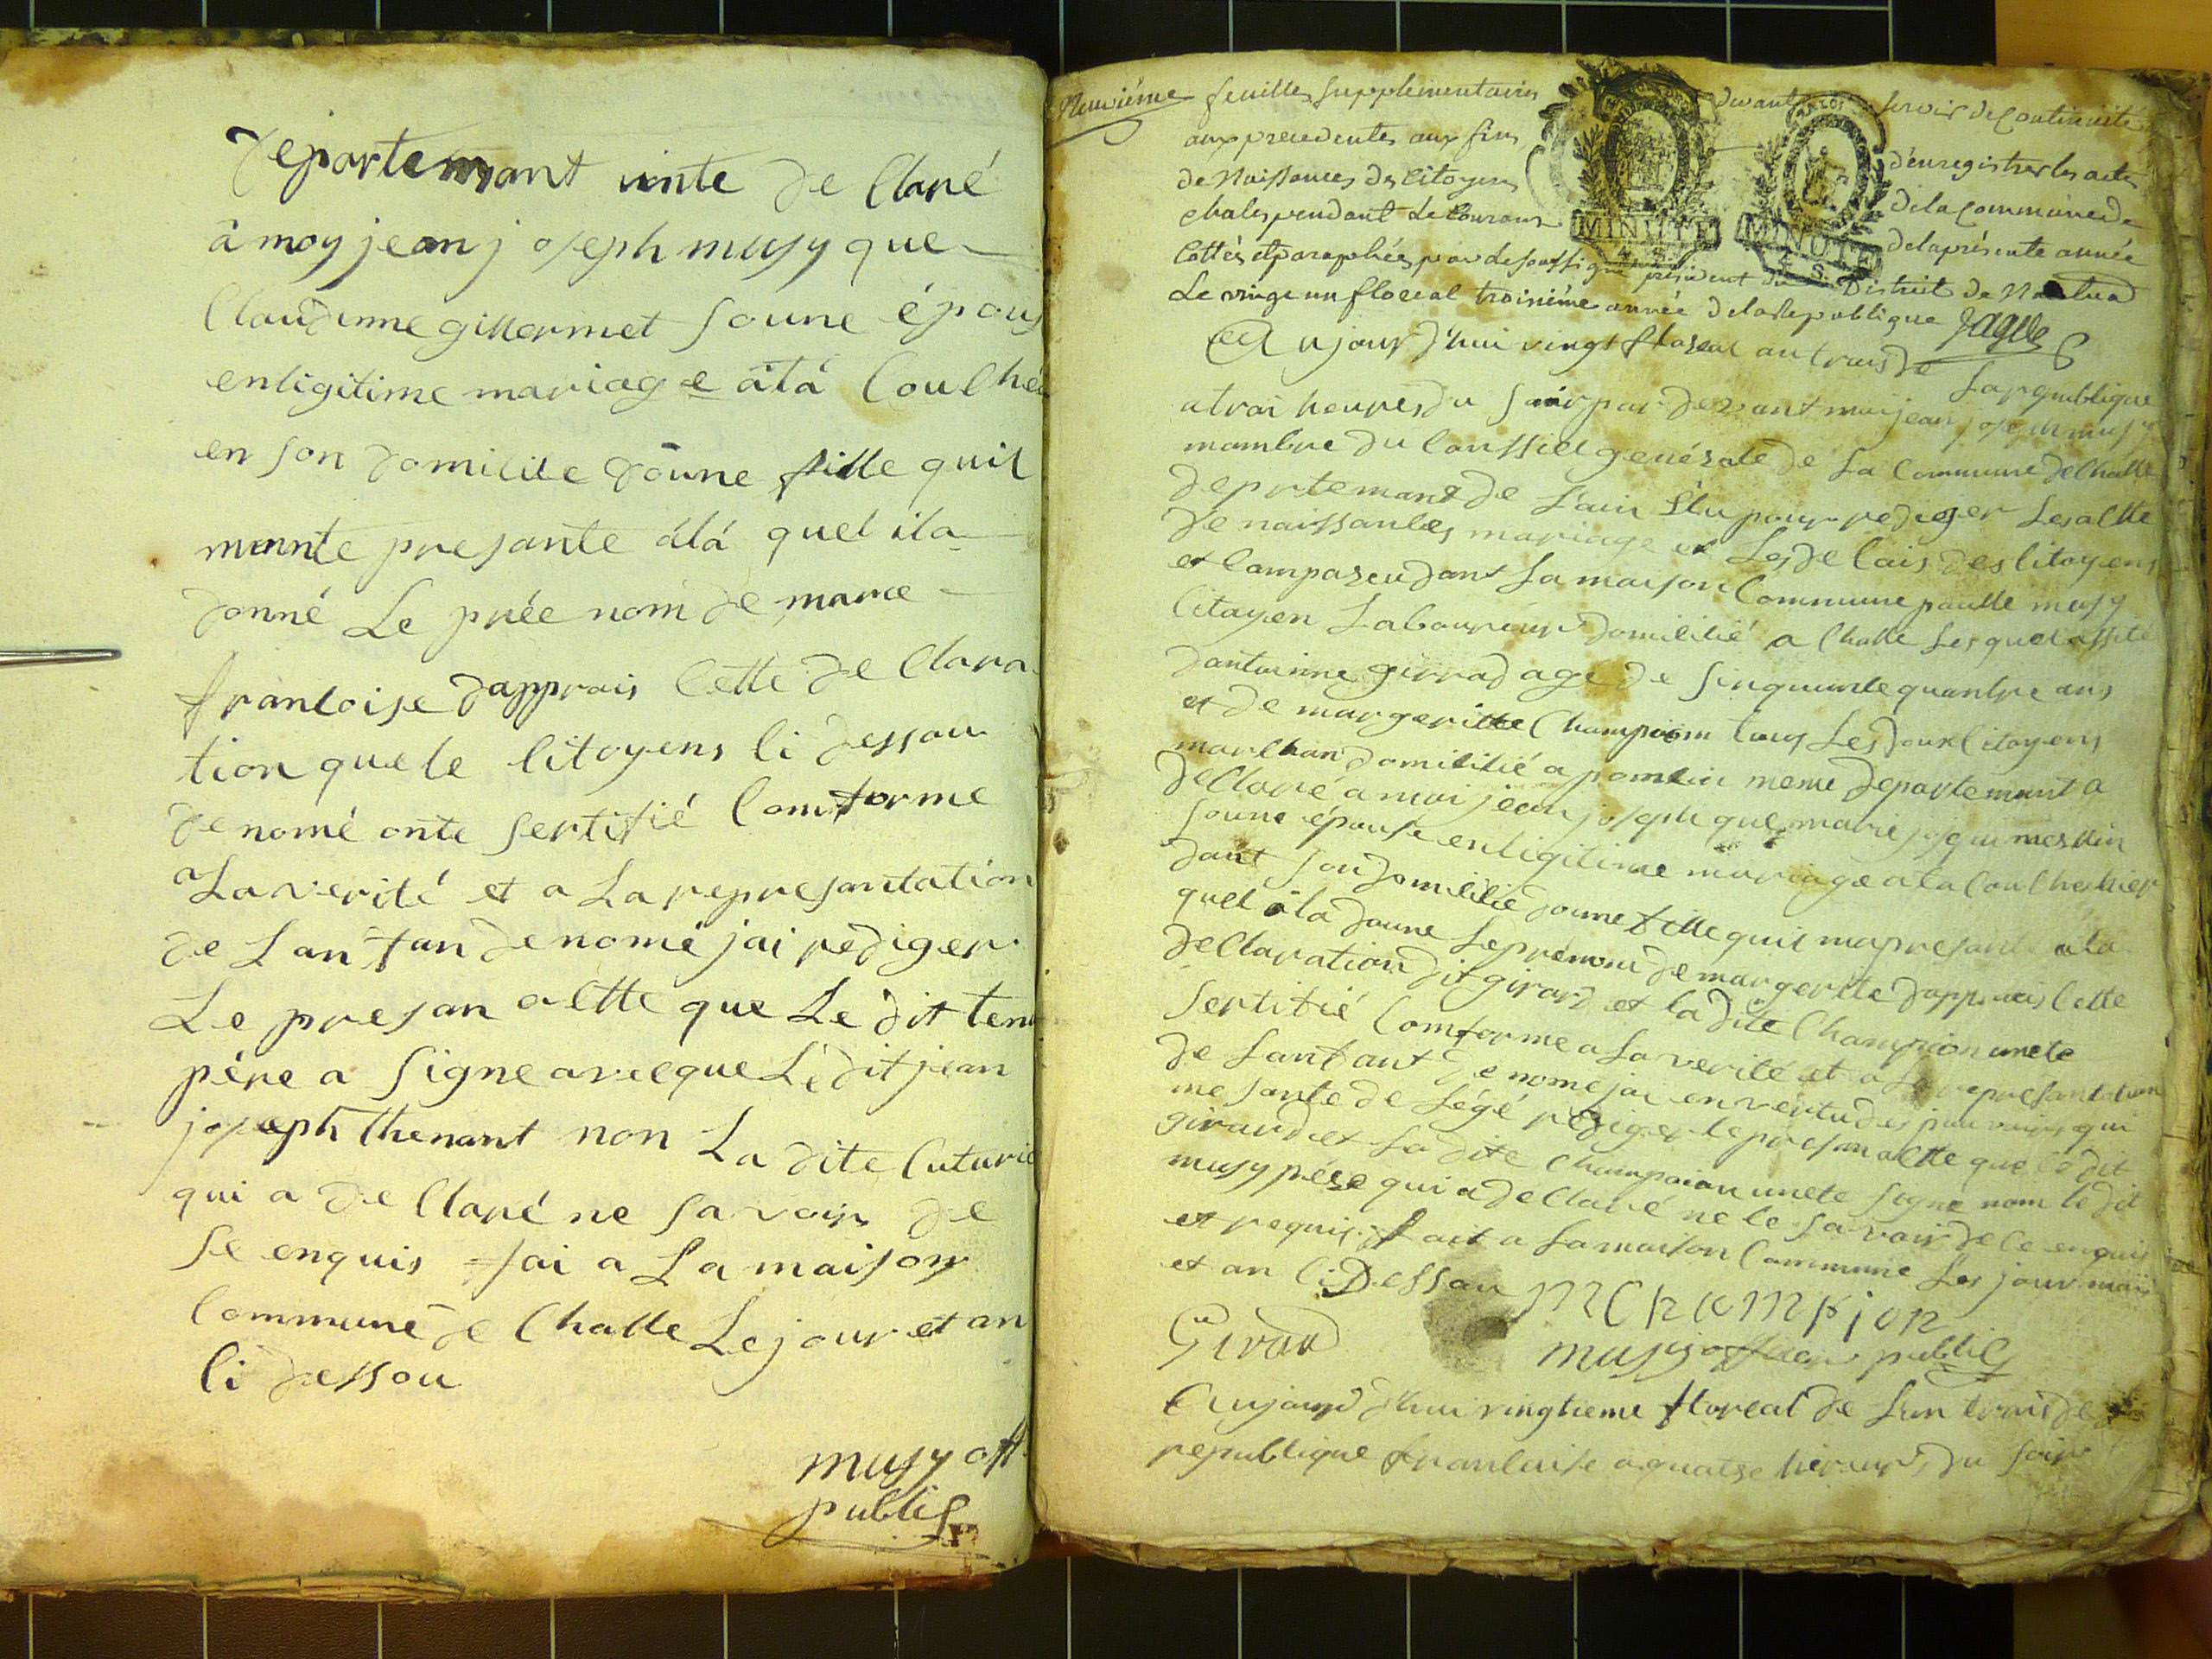 departemant unte de Claré
â moy jean joseph musy que
Claudinne gillermet soune épous
enligitime mariage âtá Coulhé
en son domicile doune fille quil
mennte presante álá quel ila
donné Le prée nom de marie
franloise dapprais Cette de Clara
tion quele litoyens li dessou
denomé onte sertifié Comforme
a La verité et a La represantation
de Lanfan denomé jai rediger
Le presan altte que Le dit ten
pére a signe avecque Le dit jean
joseph thenant non La dite Cuturie
qui a de Claré ne savoir de
se enquis fai a La maison
Commune de Challe Le jour et an
li dessou
musy off
public
Neuviéme feuilles supplémentaires devant servir de Continuité
aux precedentes aux fins d'enregistrer les actes
de Naissances des Citoyens de la Commune de
chales pendant le Courant de la présente année
Cottés et paraphées par le soussigné président du District de Nantua
Le vingt un floreal troisiéme année de la Republique Jagus
MINUTE
MINUTE
4 S.
Aujour d'hui vingt floreal an trois de La republique
a troi heures du soir par devant moi jean joseph musy
mambre du Conssiel genérale de La Commune de Challe
deprtemant de L'ain Élu pour rediger Les altte
de naissanles mariage et Les de lais des litoyens
et Comparendant La maison Commune paulle musy
Citoyen Laboureur domilié a Challe Les quel assité
dantoinne girrad age de sinquante quantre ans
et de margeritte Champion tous Les doux Citoyens
marlhan domilitié a pomlin meme departemant a
de Claré a moi jean joseph que marie
soune épouse enligitime mariage ata Coulhe hier
dant son domilitié doune fille quil mapresante ala
quel ila donne Le prénom de margerite dapprais Cette
deClaration dit girard et la dite Champion unete
sertifié Comforme a La verité et a La represantation
de Lanfant denome jai en vertu des pouvoirs qui
me sonte de Légé rediger le presan altte que le dit
girard et La dite Champaion unete signe nom le dit
musy pére qui a de Claré ne le savoir de le enquis
et requis fait a La maison Commune Les jour mois
et an li Dessou MChampion
Girard musy officier public
Aujourd'hui vingtieme floreal de Lan trois de
republique franloise a quatre heur du soir